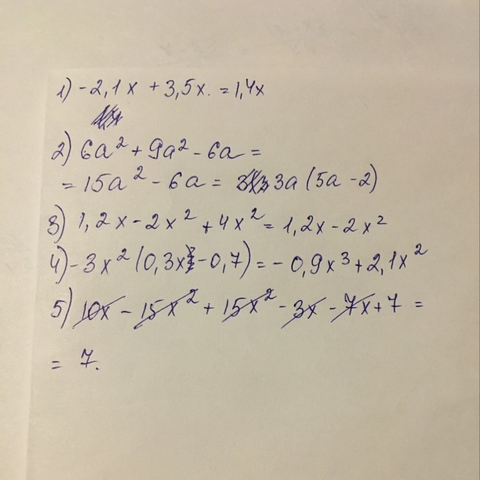 1) -2,1x + 3,5x. = 1,4x
2) 6a² + 9a² - 6a =
= 15a² - 6a = 3a (5a - 2)
3) 1,2x - 2x² + 4x² = 1,2x - 2x²
4) - 3x² (0,3x - 0,7) = - 0,9x³ + 2,1x²
5) 10x - 15x² + 15x² - 3x - 7x + 7 =
= 7.